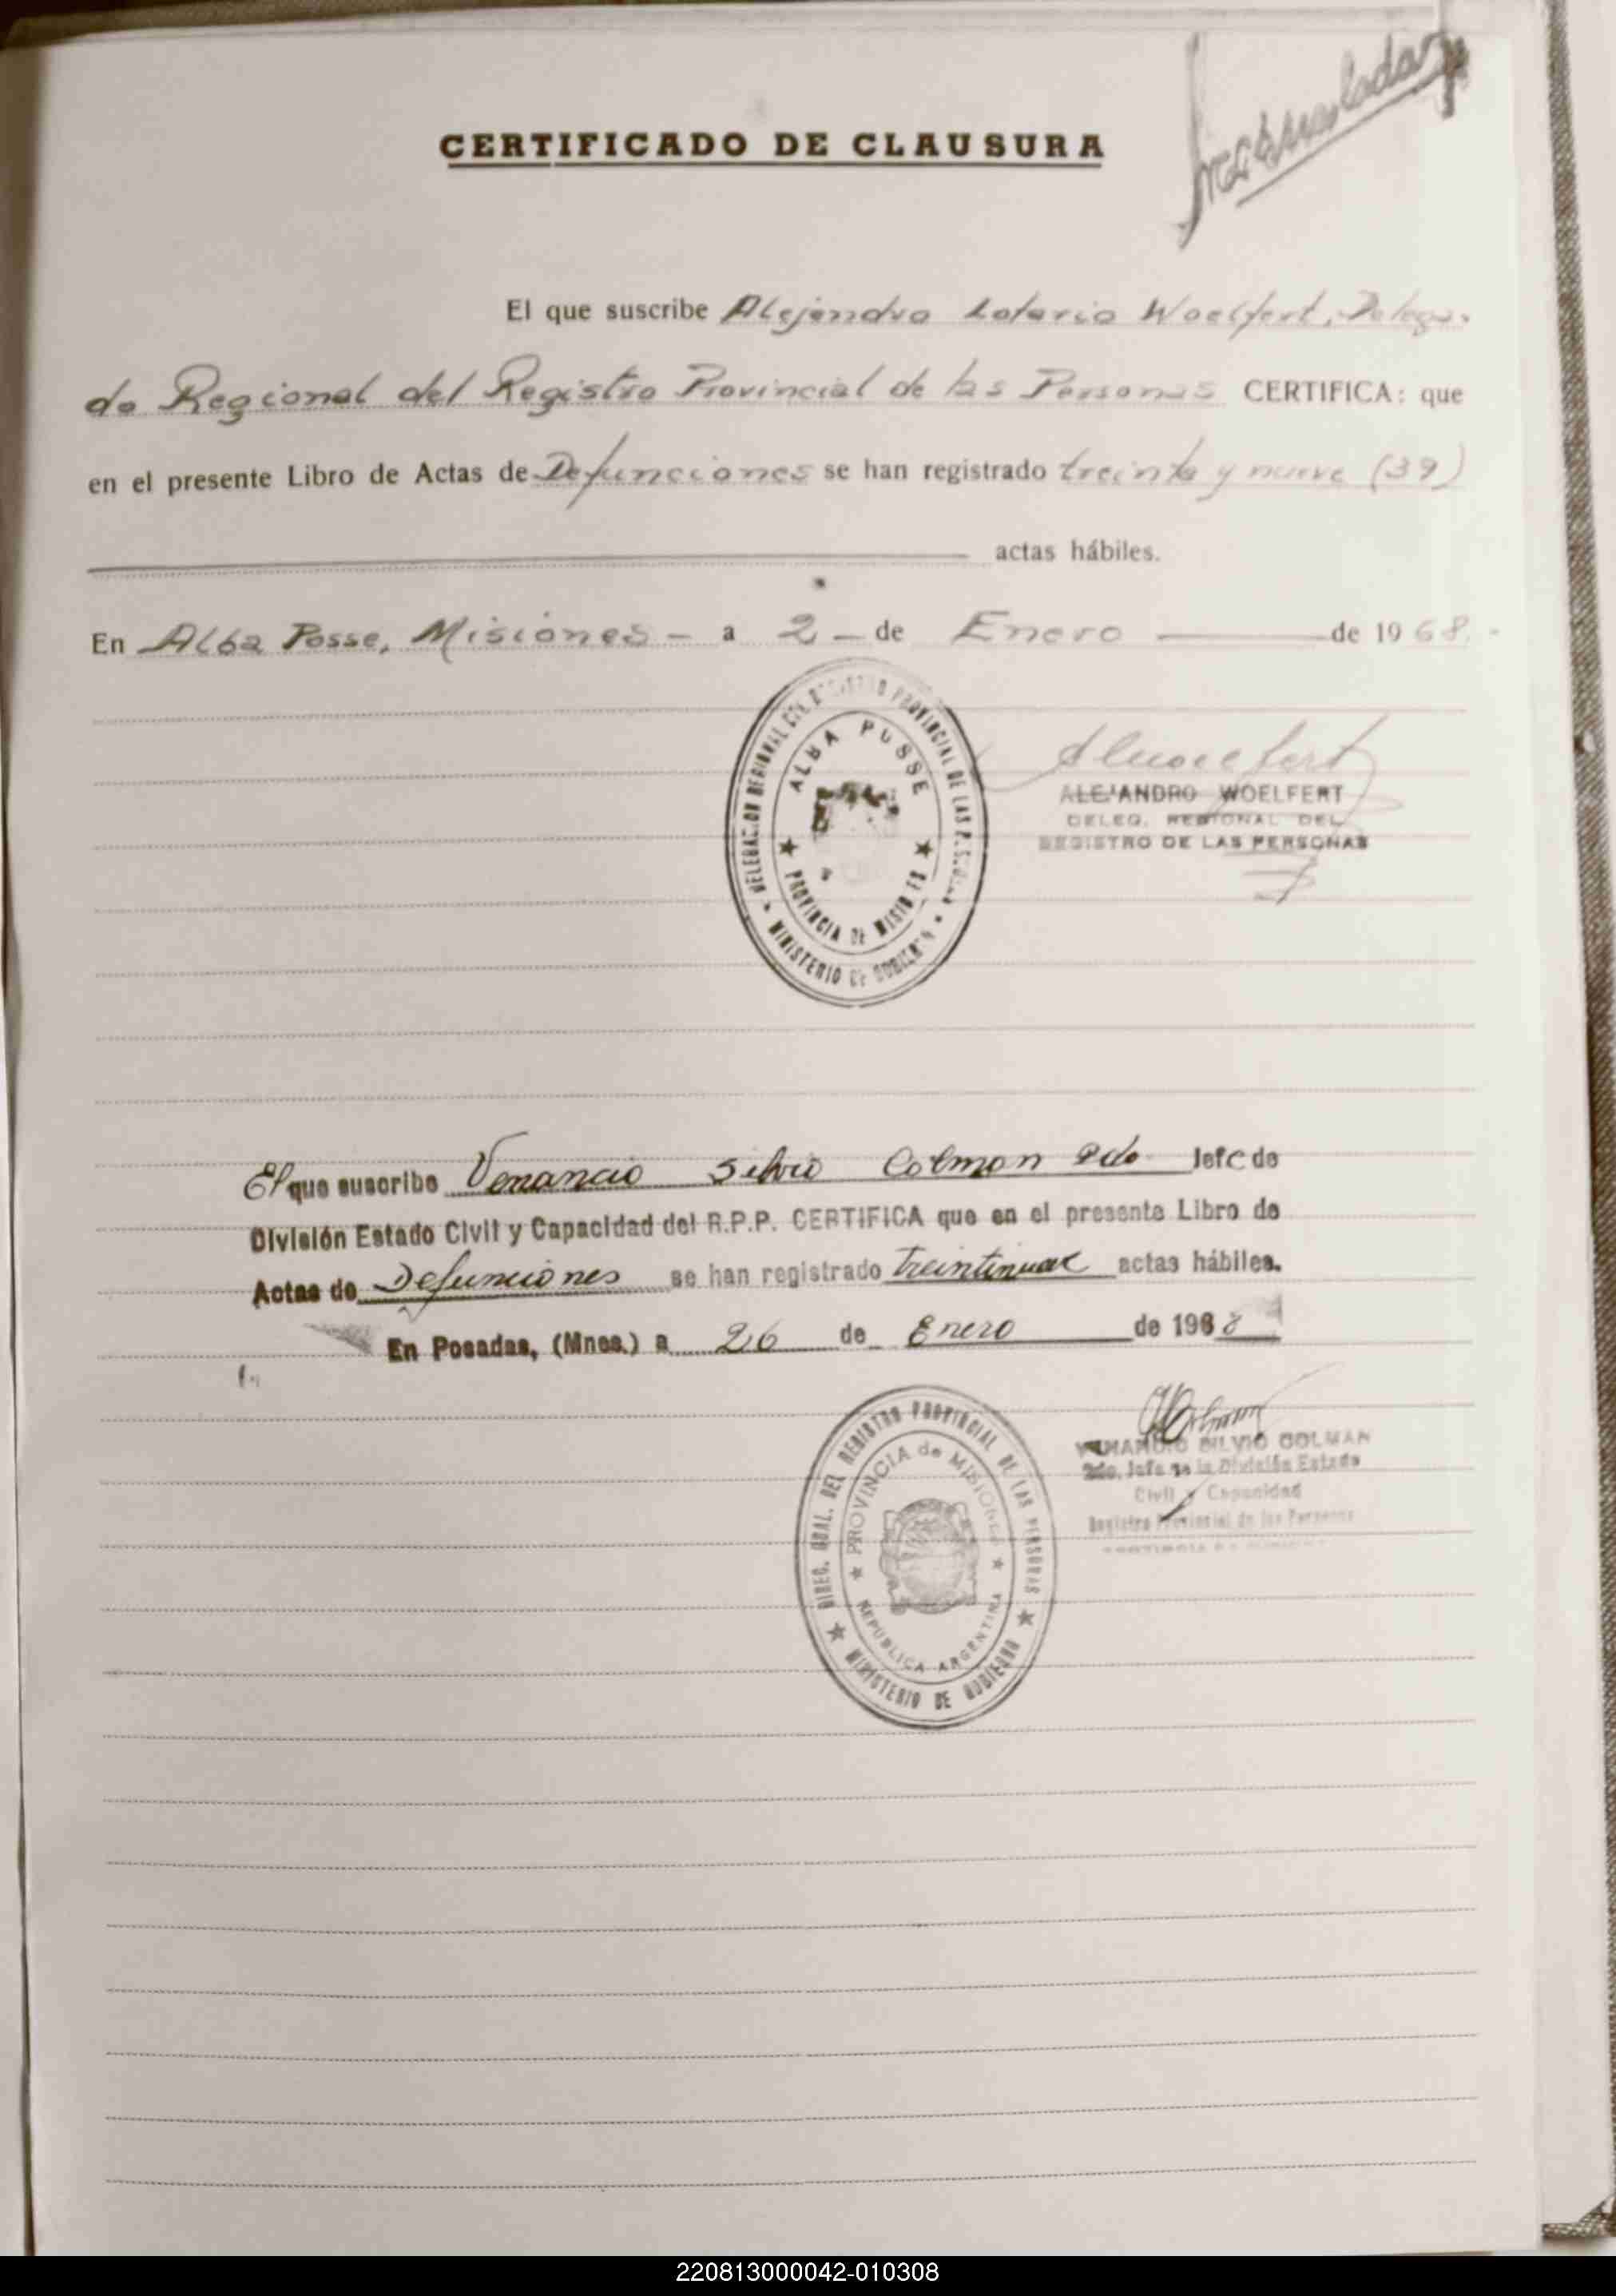 CERTIFICADO DE CLAUSURA
El que suscribe Alejandro Lotario Woelfert, Delega-
do Regional del Registro Provincial de las Personas CERTIFICA: que
en el presente Libro de Actas de Defunciones se han registrado treinta y nueve (39)
actas hábiles.
En Alba Posse, Misiones - a 2 - de Enero de 1968.-
DELEGACION REGIONAL DEL REGISTRO PROVINCIAL DE LAS
ALBA POSSE
PROVINCIA DE MISIONES
MINISTERIO DE GOBIERNO
ALEJANDRO WOELFERT
DELEG. REGIONAL DEL
REGISTRO DE LAS PERSONAS
El que suscribe Venancio Silvio Colman 2do Jefe de
División Estado Civil y Capacidad del R.P.P. CERTIFICA que en el presente Libro de
Actas de Defunciones se han registrado treintinueve actas hábiles.
En Posadas, (Mnes.) a 26 de Enero de 1968
DIREG. GRAL. DEL REGISTRO PROVINCIAL DE LAS PERSONAS
PROVINCIA de MISIONES
REPUBLICA ARGENTINA
MINISTERIO DE GOBIERNO
VENANCIO SILVIO COLMAN
2do. Jefe de la División Estado
Civil y Capacidad
Registro Provincial de las Personas
220813000042-010308